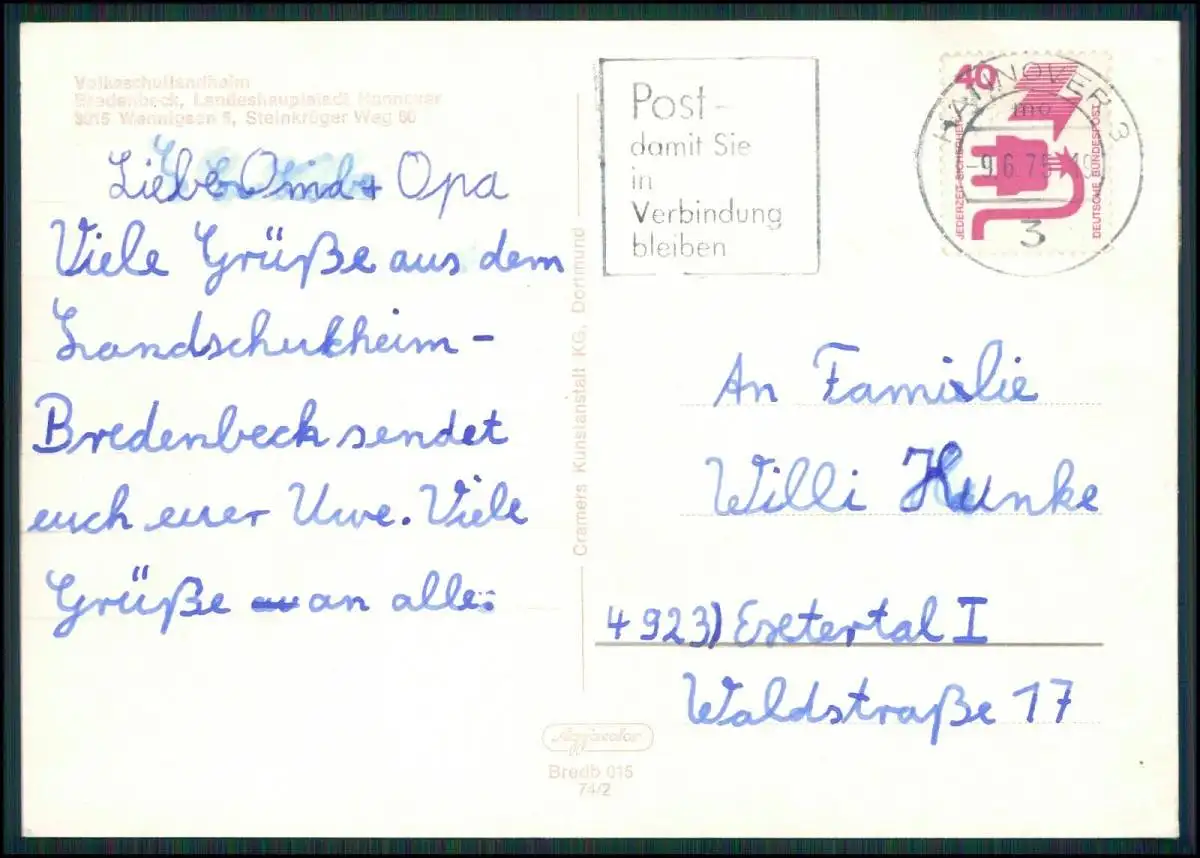 Volksschullandheim
Bredenbeck, Landeshauptstadt Hannover
3015 Wennigsen 5, Steinkrüger Weg 60
Liebe Om d + Opa
Viele Grüße aus dem
Landschulheim -
Bredenbeck sendet
euch euer Uwe. Viele
Grüße an alle.
Cramers Kunstanstalt KG, Dortmund
Agfacolor
Bredb 015
74/2
Post -
damit Sie
in
Verbindung
bleiben
40
JEDERZEIT SICHERHEIT
DEUTSCHE BUNDESPOST
HANNOVER 3
mo
-9.6.75
3
An Familie
Willi Hunke
4923) Exetertal I
Waldstraße 17